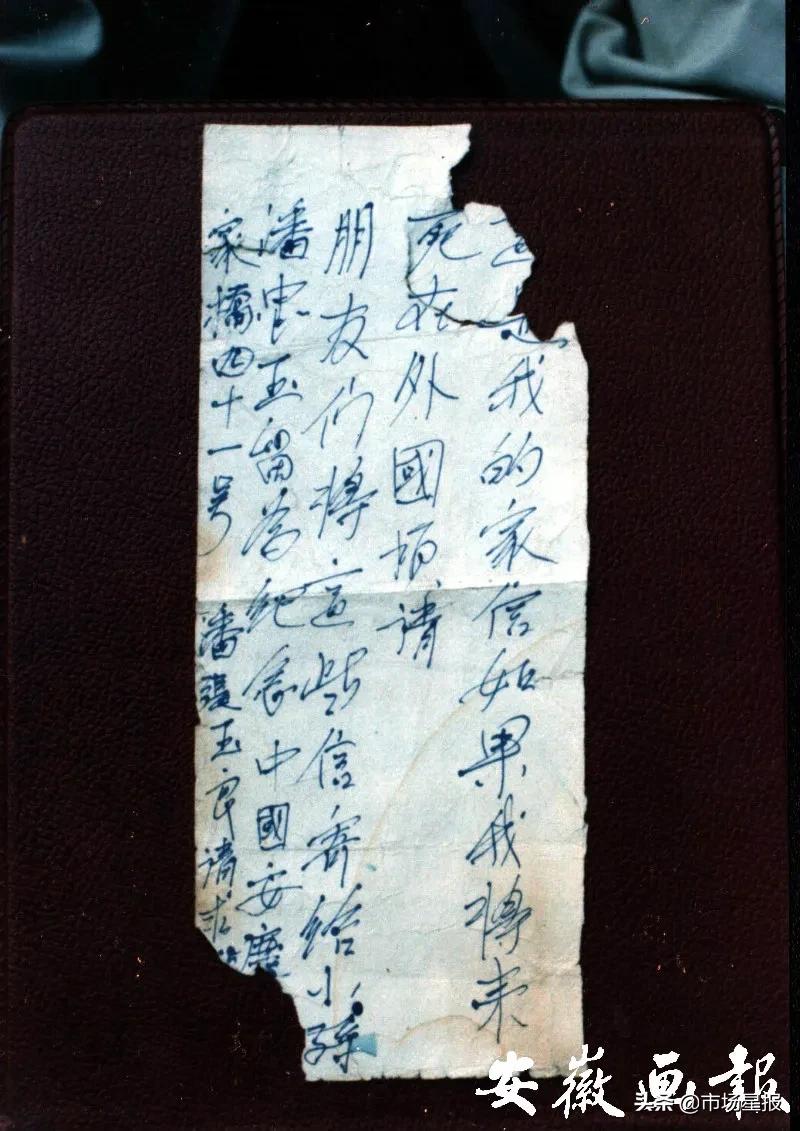 這是我的家信如果我將来
死在外國煩請
朋友们將這些信寄给小孫
潘忠玉留為纪念中國安慶
家橋四十一号 潘張玉良請求
安徽画報
头条 @市场星报